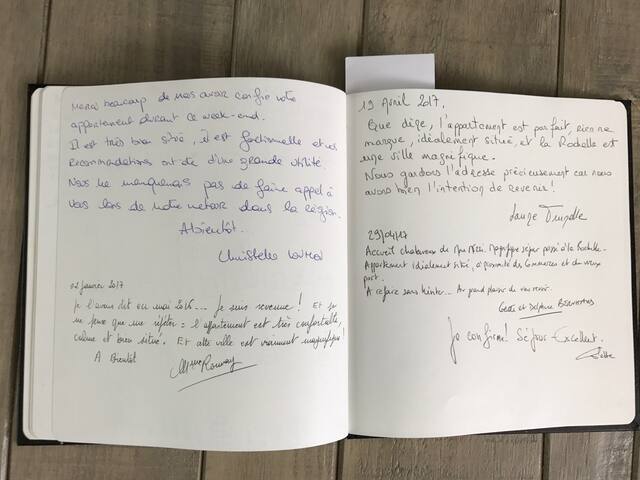 Merci beaucoup de nous avoir confié votre
appartement durant ce week-end.
Il est très bien situé, il est fonctionnelle et vos
recommendations ont été d'une grande utilité.
Nous ne manquerons pas de faire appel à
vous lors de notre retour dans la région.
A bientôt.
Christelle
02 janvier 2017
Je l'avais dit en mai 2016... Je suis revenue! Et je
ne peux que me répéter: l'appartement est très confortable,
calme et bien situé. Et cette ville est vraiment magnifique!
A Bientôt
19 Avril 2017.
Que dire, l'appartement est parfait, rien ne
manque, idéalement situé, et la Rochelle est
une ville magnifique.
Nous gardons l'adresse précieusement car nous
avons bien l'intention de revenir!
29/04/17
Accueil chaleureux de Magnifique séjour passé à la Rochelle.
Appartement idéalement situé, à proximité des commerces et du vieux
port.
A refaire sans hésiter... Au grand plaisir de vous revoir.
et Delphine
Je confirme! Séjour Excellent.